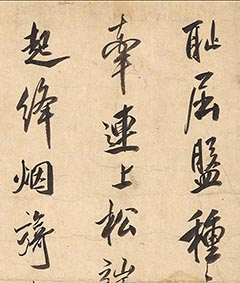 耻屈盤種
牽連上松端
起絳烟旖